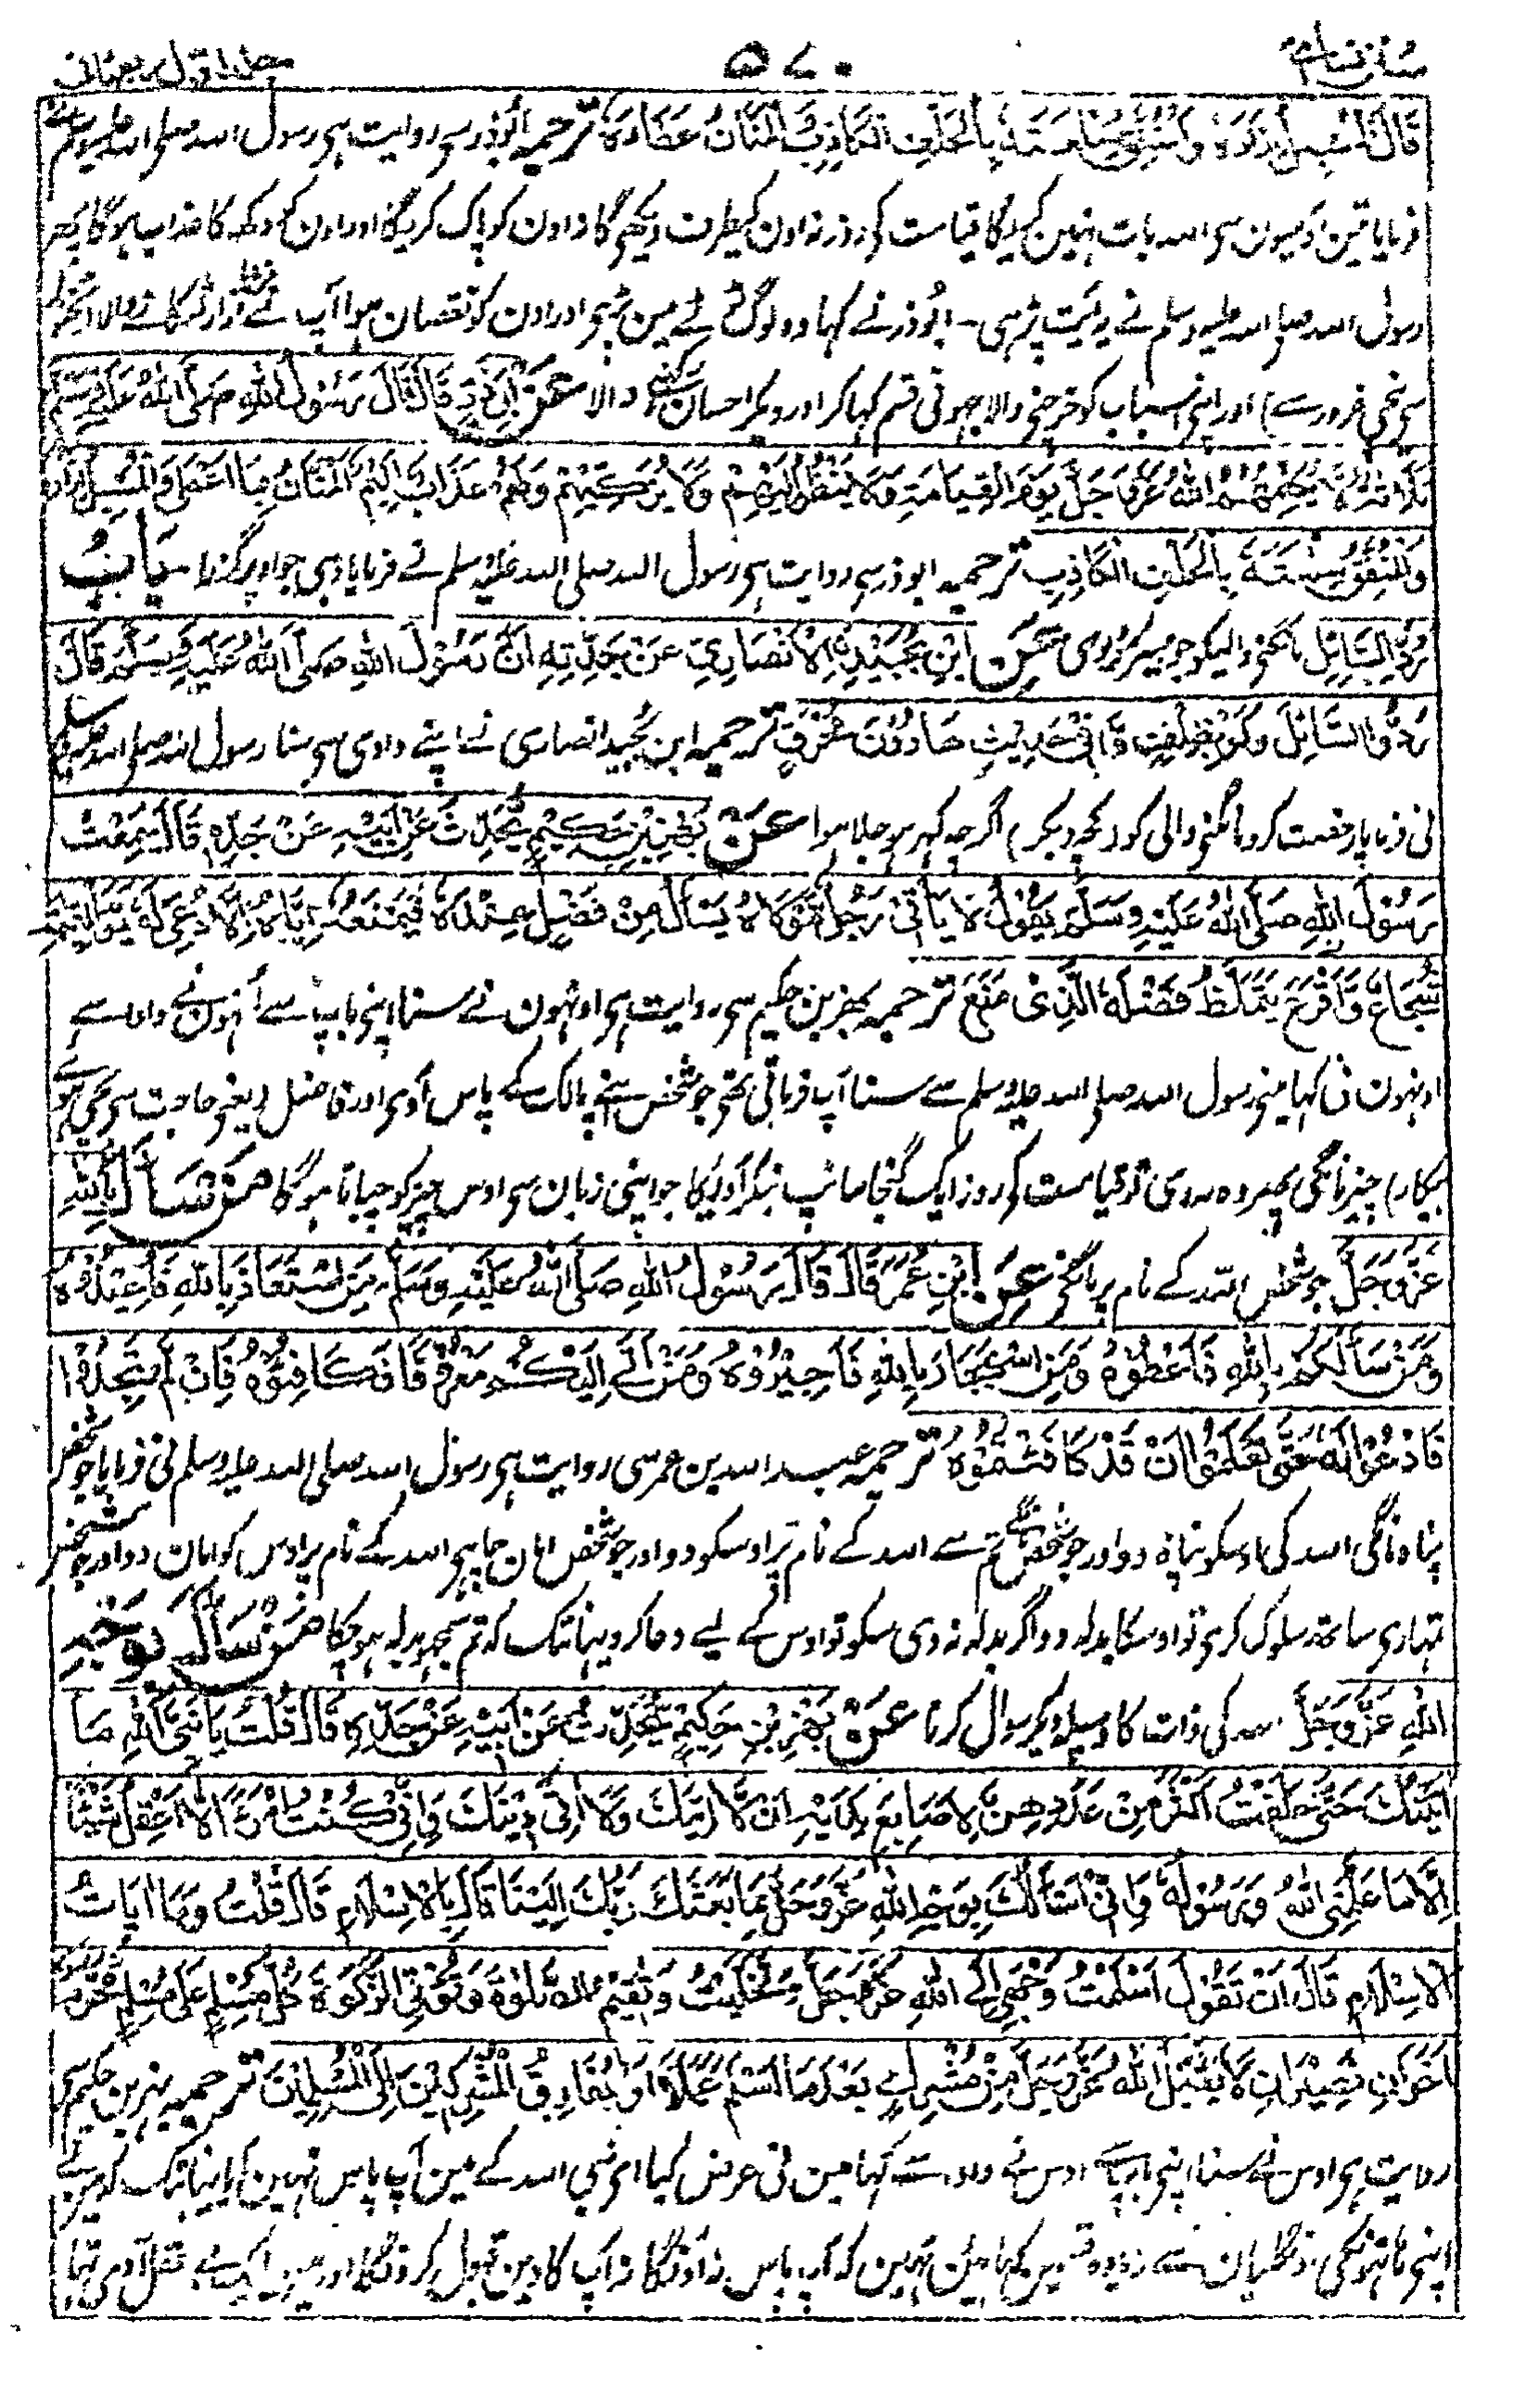 سنن نسائی ۵۷۰ جلد اول
قَالَ الْمُسْبِلُ إِزَارَهُ وَالْمُنَفِّقُ سِلْعَتَهُ بِالْحَلْفِ الْكَاذِبِ الْمَنَّانُ عَطَاءَهُ ترجمہ ابوذر سے روایت ہی رسول اللہ صلی اللہ علیہ وسلم نے
فرمایا تین آدمیون سی اللہ بات نہین کریگا قیامت کی روز نہ اون کیطرف دیکھی گا نہ اون کو پاک کریگا اور اون کو دکھ کا عذاب ہوگا پھر
رسول اللہ صلی اللہ علیہ وسلم نے یہ آیت پڑھی - ابوذر نے کہا وہ لوگ ٹوٹے مین پڑی اور اون کو نقصان ہوا آپ نے فرمایا ازار لٹکانے والا (ٹخنون
سی نیچی غرور سے) اور اپنی اسباب کو خرچنی والا جہوٹی قسم کہا کر اور دیکر احسان رکہنے والا عَنْ أَبِي ذَرٍّ قَالَ قَالَ رَسُولُ اللهِ صَلَّى اللهُ عَلَيْهِ وَسَلَّمَ
ثَلَاثَةٌ لَا يُكَلِّمُهُمُ اللهُ عَزَّ وَجَلَّ يَوْمَ الْقِيَامَةِ وَلَا يَنْظُرُ إِلَيْهِمْ وَلَا يُزَكِّيهِمْ وَلَهُمْ عَذَابٌ أَلِيمٌ الْمَنَّانُ بِمَا أَعْطَى وَالْمُسْبِلُ إِزَارَهُ
وَالْمُنَفِّقُ سِلْعَتَهُ بِالْحَلْفِ الْكَاذِبِ ترجمہ ابوذر سی روایت ہی رسول اللہ صلی اللہ علیہ وسلم نے فرمایا وہی جو اوپر گزرا بَابُ
رَدِّ السَّائِلِ مانگنی والیکو جو میسر ہو دی عَنِ ابْنِ بُجَيْدٍ الْأَنْصَارِيِّ عَنْ جَدَّتِهِ أَنَّ رَسُولَ اللهِ صَلَّى اللهُ عَلَيْهِ وَسَلَّمَ قَالَ
رُدُّوا السَّائِلَ وَلَوْ بِظِلْفٍ وَفِي حَدِيثِ هَارُونَ مُحْرَقٍ ترجمہ ابن بجید انصاری نے اپنے دادی سی سنا رسول اللہ صلی اللہ علیہ وسلم
نی فرمایا رخصت کرو مانگنی والی کو (کچھ دیکر) اگرچہ کہر ہو جلا ہوا عَنْ بَهْزِ بْنِ حَكِيمٍ يُحَدِّثُ عَنْ أَبِيهِ عَنْ جَدِّهِ قَالَ سَمِعْتُ
رَسُولَ اللهِ صَلَّى اللهُ عَلَيْهِ وَسَلَّمَ يَقُولُ لَا يَأْتِي رَجُلٌ مَوْلَاهُ يَسْأَلُهُ مِنْ فَضْلٍ عِنْدَهُ فَيَمْنَعُهُ إِيَّاهُ إِلَّا دُعِيَ لَهُ يَوْمَ الْقِيَامَةِ
شُجَاعٌ أَقْرَعُ يَتَلَمَّظُ فَضْلَهُ الَّذِي مَنَعَ ترجمہ بہز بن حکیم سی روایت ہی اونہون نے سنا اپنی باپ سے اُنہون نے دادا سے
اونہون نی کہا مینی رسول اللہ صلی اللہ علیہ وسلم سے سنا آپ فرماتی تھی جو شخص اپنی مالک کے پاس آوی اور فاضل (یعنی حاجت سی بچی ہوئی
بیکار) چیز مانگی پھر وہ نہ دی تو قیامت کی روز ایک گنجا سانپ بنکر آویگا جو اپنی زبان سی اوس چیز کو چباتا ہوگا مَنْ سَأَلَ بِاللهِ
عَزَّ وَجَلَّ جو شخص اللہ کے نام پر مانگی عَنِ ابْنِ عُمَرَ قَالَ قَالَ رَسُولُ اللهِ صَلَّى اللهُ عَلَيْهِ وَسَلَّمَ مَنِ اسْتَعَاذَ بِاللهِ فَأَعِيذُوهُ
وَمَنْ سَأَلَكُمْ بِاللهِ فَأَعْطُوهُ وَمَنِ اسْتَجَارَ بِاللهِ فَأَجِيرُوهُ وَمَنْ آتَى إِلَيْكُمْ مَعْرُوفًا فَكَافِئُوهُ فَإِنْ لَمْ تَجِدُوا
فَادْعُوا لَهُ حَتَّى تَعْلَمُوا أَنْ قَدْ كَافَأْتُمُوهُ ترجمہ عبد اللہ بن عمر سی روایت ہی رسول اللہ صلی اللہ علیہ وسلم نی فرمایا جو شخص
پناہ مانگی اللہ کی اوسکو پناہ دو اور جو شخص مانگے تم سے اللہ کے نام پر اوسکو دو اور جو شخص امان چاہی اللہ کے نام پر اوس کو امان دو اور جو شخص
تمہاری ساتھ سلوک کری تو اوسکا بدلہ دو اگر بدلہ نہ دی سکو تو اوس کے لیے دعا کرو یہانتک کہ تم سمجہو بدلہ ہو چکا مَنْ سَأَلَ بِوَجْهِ
اللهِ عَزَّ وَجَلَّ اللہ کی ذات کا وسیلہ دیکر سوال کرنا عَنْ بَهْزِ بْنِ حَكِيمٍ يُحَدِّثُ عَنْ أَبِيهِ عَنْ جَدِّهِ قَالَ قُلْتُ يَا نَبِيَّ اللهِ مَا
أَتَيْتُكَ حَتَّى حَلَفْتُ أَكْثَرَ مِنْ عَدَدِهِنَّ لِأَصَابِعِ يَدَيْهِ أَنْ لَا آتِيَكَ وَلَا آتِيَ دِينَكَ وَإِنِّي كُنْتُ امْرَأً لَا أَعْقِلُ شَيْئًا
إِلَّا مَا عَلَّمَنِي اللهُ وَرَسُولُهُ وَإِنِّي أَسْأَلُكَ بِوَجْهِ اللهِ عَزَّ وَجَلَّ بِمَا بَعَثَكَ رَبُّكَ إِلَيْنَا قَالَ بِالْإِسْلَامِ قَالَ قُلْتُ وَمَا آيَاتُ
الْإِسْلَامِ قَالَ أَنْ تَقُولَ أَسْلَمْتُ وَجْهِيَ إِلَى اللهِ عَزَّ وَجَلَّ وَتَخَلَّيْتُ وَتُقِيمَ الصَّلَاةَ وَتُؤْتِيَ الزَّكٰوةَ كُلُّ مُسْلِمٍ عَلَى مُسْلِمٍ مُحَرَّمٌ
أَخَوَانِ نَصِيرَانِ لَا يَقْبَلُ اللهُ عَزَّ وَجَلَّ مِنْ مُشْرِكٍ بَعْدَ مَا أَسْلَمَ عَمَلًا أَوْ يُفَارِقُ الْمُشْرِكِينَ إِلَى الْمُسْلِمِينَ ترجمہ بہز بن حکیم سی
روایت ہی اوس نے سنا اپنی باپ سے اوس نے دادا سے کہا مین نی عرض کیا ای نبی اللہ کے مین آپ پاس نہین آیا یہانتک کہ مین نے
اپنی ہاتہونکی اونگلیان سے زیادہ قسمین کہائین تہین کہ آپ پاس نہ آؤنگا نہ آپ کا دین قبول کرونگا اور مین ایک بے عقل آدمی تہا